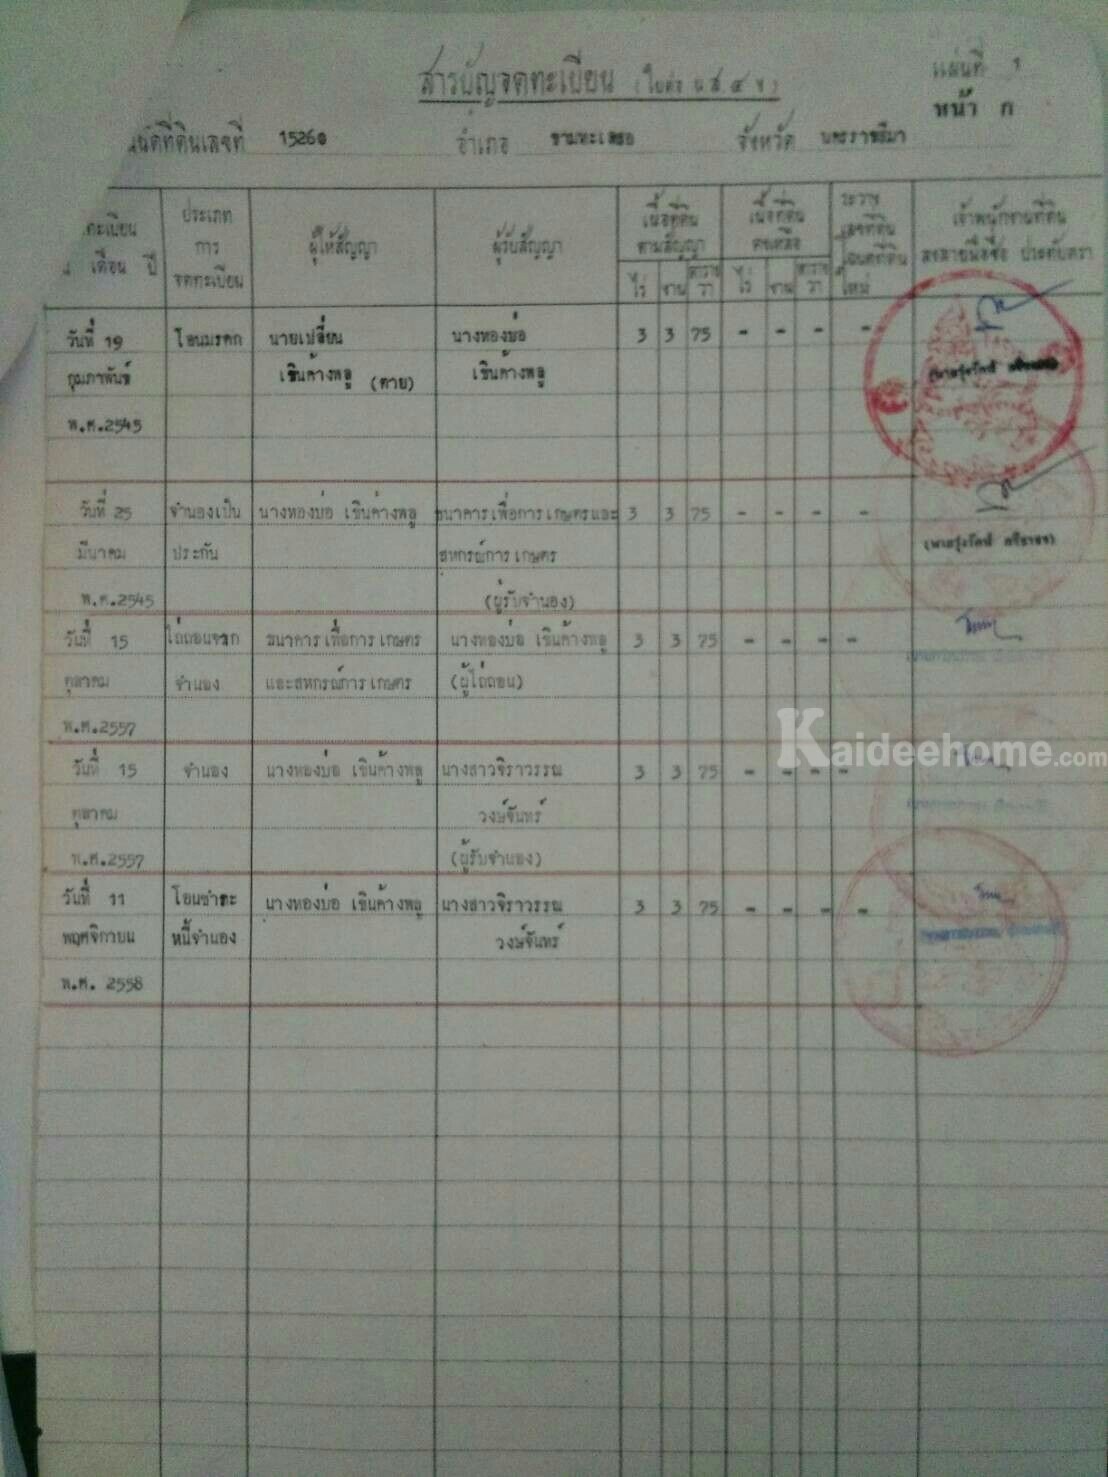 สารบัญจดทะเบียน (ใบต่อ น.ส. ๔ จ)
แผ่นที่ 1
หน้า ก
ที่ดินเลขที่ 15260 อำเภอ ขามทะเลสอ จังหวัด นครราชสีมา
ทะเบียน
เดือน ปี
ประเภท
การ
จดทะเบียน
ผู้ให้สัญญา
ผู้รับสัญญา
เนื้อที่ดิน
ตามสัญญา
ไร่ งาน ตาราง
วา
เนื้อที่ดิน
คงเหลือ
ไร่ งาน ตาราง
วา
ระวาง
เลขที่ดิน
โฉนดที่ดิน
ใหม่
เจ้าพนักงานที่ดิน
ลงลายมือชื่อ ประทับตรา
วันที่ 19 โอนมรดก นายเปลี่ยน นางทองบ่อ 3 3 75 - - - -
กุมภาพันธ์ เขินค้างพลู (ตาย) เขินค้างพลู
พ.ศ.2545
วันที่ 25 จำนองเป็น นางทองบ่อ เขินค้างพลู ธนาคารเพื่อการเกษตรและ 3 3 75 - - - -
มีนาคม ประกัน สหกรณ์การเกษตร
พ.ศ.2545 (ผู้รับจำนอง)
วันที่ 15 ไถ่ถอนจาก ธนาคารเพื่อการเกษตร นางทองบ่อ เขินค้างพลู 3 3 75 - - - -
ตุลาคม จำนอง และสหกรณ์การเกษตร (ผู้ไถ่ถอน)
พ.ศ.2557
วันที่ 15 จำนอง นางทองบ่อ เขินค้างพลู นางสาวจิราวรรณ 3 3 75 - - - -
ตุลาคม วงษ์จันทร์
พ.ศ.2557 (ผู้รับจำนอง)
วันที่ 11 โอนชำระ นางทองบ่อ เขินค้างพลู นางสาวจิราวรรณ 3 3 75 - - - -
พฤศจิกายน หนี้จำนอง วงษ์จันทร์
พ.ศ. 2558
Kaideehome.com